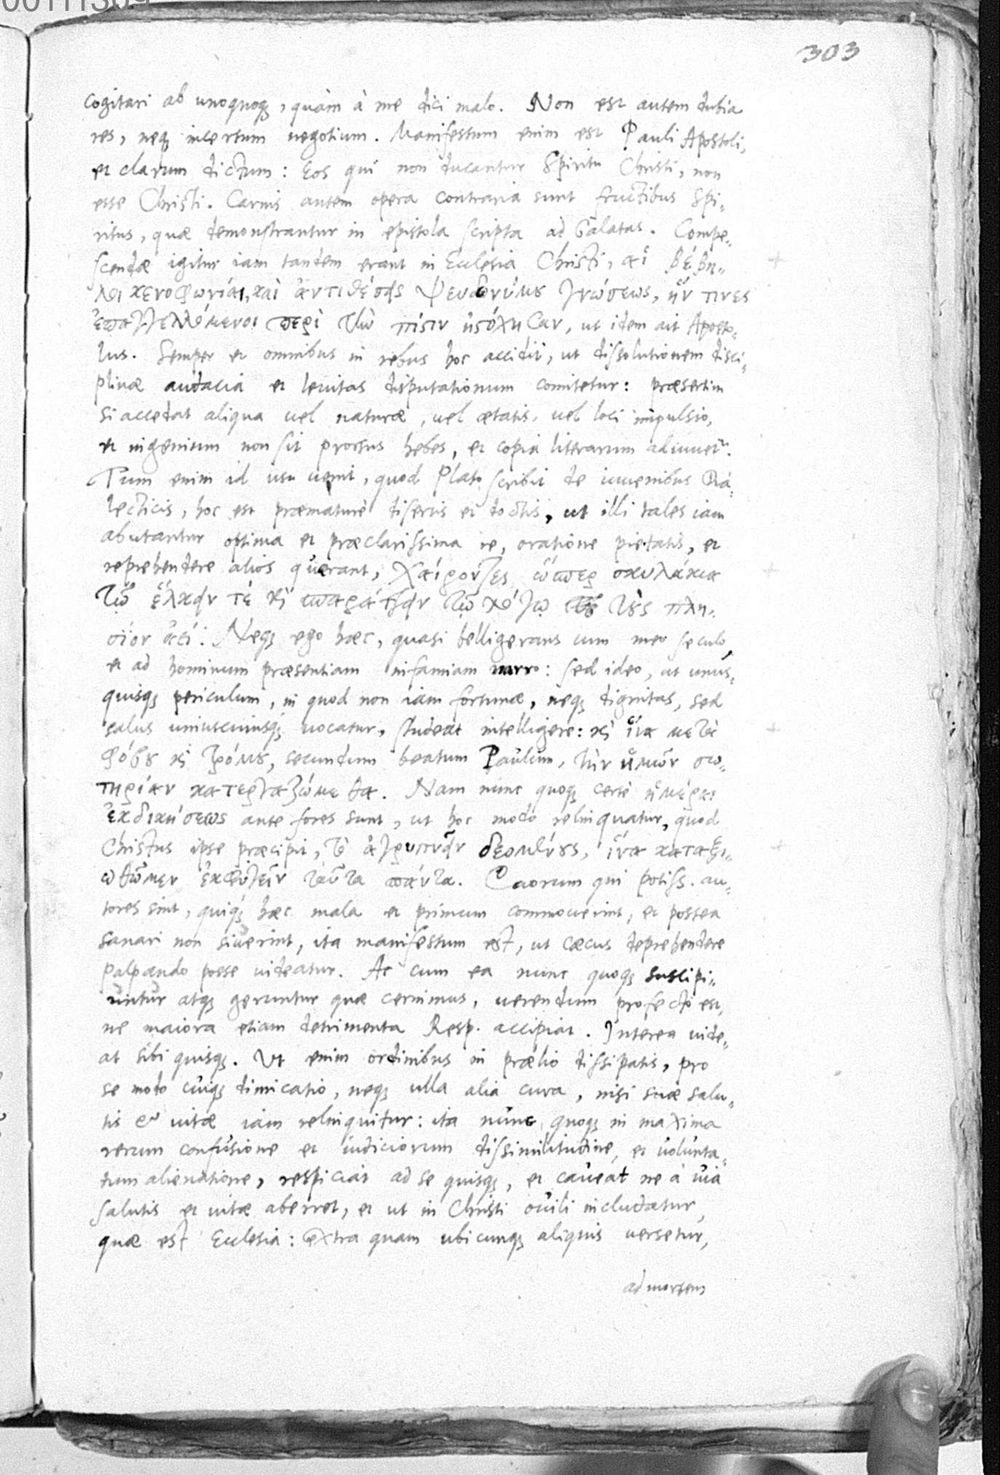 00111309
303
cogitari ab unoquoq;, quàm à me dici malo. Non est autem dubia
res, neq; incertum negotium. Manifestum enim est Pauli Apostoli,
et clarum dictum: Eos qui non ducantur Spiritu Christi, non
esse Christi. Carnis autem opera contraria sunt fructibus Spi-
ritus, quæ demonstrantur in epistola scripta ad Galatas. Compe-
scendæ igitur iam tandem erant in Ecclesia Christi, αἱ βέβη-
λοι κενοφωνίαι, καὶ ἀντιθέσεις ψευδωνύμου γνώσεως, ἥν τινες
ἐπαγγελλόμενοι περὶ τὴν πίστιν ἠστόχησαν, ut idem ait Aposto-
lus. Semper et omnibus in rebus hoc accidit, ut dissolutionem disci-
plinæ audacia et levitas disputationum comitetur: præsertim
si accedat aliqua vel naturæ, vel ætatis, vel loci impulsio,
et ingenium non sit prorsus hebes, et copia literarum adiuvet.
Tum enim id usu venit, quod Plato scribit de iuvenibus Dia-
lecticis, hoc est præmaturè disertis et doctis, ut illi tales iam
abutantur optima et præclarissima re, oratione pietatis, et
reprehendere alios quærant, χαίροντες ὥσπερ σκυλάκια
τῷ ἕλκειν τέ κỳ σπαράττειν τῷ λόγῳ τοὺς πλη-
σίον ἀεί. Neq; ego hæc, quasi belligerans cum meo seculo,
et ad hominum præsentium infamiam narro: sed ideo, ut unus-
quisq; periculum, in quod non iam fortunæ, neq; dignitas, sed
salus uniuscuiusq; vocatur, studeat intelligere: κỳ ἵνα μετὰ
φόβου κỳ τρόμου, secundum beatum Paulum, τὴν ἡμῶν σω-
τηρίαν κατεργαζώμεθα. Nam nunc quoq; certè ἡμέραι
ἐκδικήσεως ante fores sunt, ut hoc modò relinquatur, quod
Christus ipse præcipit, τὸ ἀγρυπνεῖν δεομένους, ἵνα καταξι-
ωθῶμεν ἐκφυγεῖν ταῦτα πάντα. Eaorum qui potiss. au-
tores sint, quiq; hæc mala et primum commoverint, et postea
sanari non siverint, ita manifestum est, ut cæcus deprehendere
palpando posse videatur. Ac cum ea nunc quoq; suscipi-
untur atq; geruntur quæ cernimus, verendum profectò est,
ne maiora etiam detrimenta Resp. accipiat. Interea vide-
at sibi quisq;. Ut enim ordinibus in prælio dissipatis, pro
se modo cuiq; dimicatio, neq; ulla alia cura, nisi suæ salu-
tis et vitæ iam relinquitur: ita nunc quoq; in maxima
rerum confusione et iudiciorum dissimilitudine, et volunta-
tum alienatione, respiciat ad se quisq;, et caveat ne à via
salutis et vitæ aberret, et ut in Christi ovili includatur,
quæ est Ecclesia: extra quam ubicunq; aliquis versetur,
ad mortem